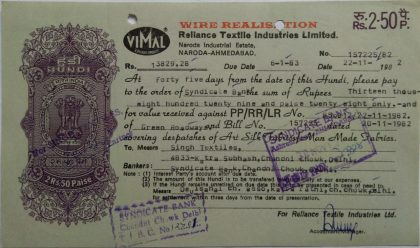 रु. 2·50 पै.
WIRE REALISATION
VIMAL
Reliance Textile Industries Limited.
Naroda Industrial Estate,
NARODA-AHMEDABAD.
No. 157225/82
Rs. 13829,28 Due Date 6-1-83 Date 22-11- 1982
At Forty five days from the date of this Hundi, please pay
to the order of Syndicate Bank the sum of Rupees Thirteen thous-
eight hundred twenty nine and paise twenty eight only, and-
for value received against PP/RR/LR No. 22-11-1982.
of Green Roadways and Bill No. 157225 dated 20-11-1982
covering despatches of Art Silk Fabrics/Man Made Fabrics.
To Messrs Singh Textiles,
4833-
Chandni Chowk, Delhi.
Bankers: Syndicate Bank, Chandni Chowk, Delhi.
Note: (1) Interest Party's account after due date.
(2) The amount of this Hundi is to be transferred
(3) If the Hundi remains unretired on due date this
for settlement within three days from the date of presentation.
हुंडी
HUNDI
2 Rs. 50 Paise
SYNDICATE BANK
Chandni Chowk Delhi
I. B. C. No.
For Reliance Textile Industries Ltd.
Accountant/Manager